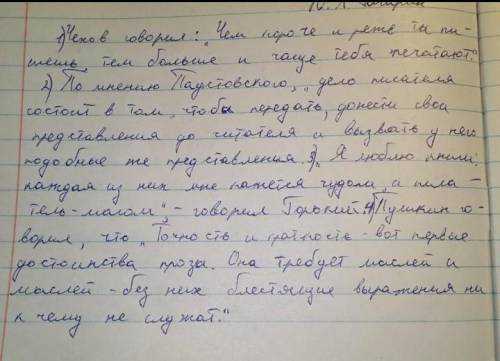 1) Чехов говорил: „Чем короче и реже ты пи-
шешь, тем больше и чаще тебя печатают."
2) По мнению Паустовского, „дело писателя
состоит в том, чтобы передать, донести свои
представления до читателя и вызвать у него
подобные же представления. 3) „Я люблю книги:
каждая из них мне кажется чудом, а писа-
тель-магом", - говорил Горький. 4) Пушкин го-
ворил, что „Точность и краткость - вот первые
достоинства прозы. Она требует мыслей и
мыслей - без них блестящие выражения ни
к чему не служат."